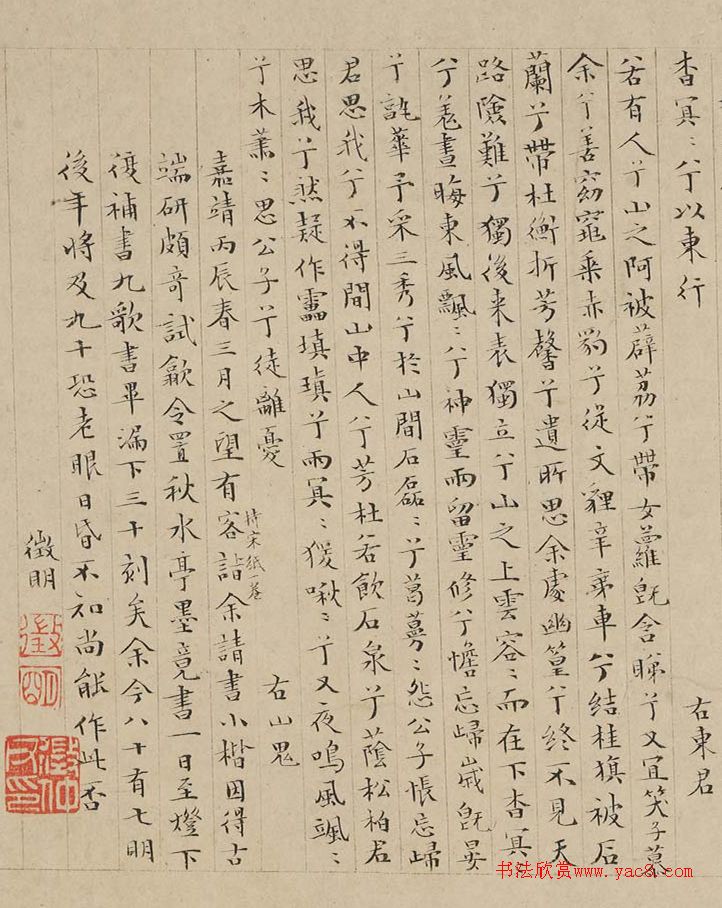 杳冥〻兮以東行
右東君
若有人兮山之阿被薜荔兮帶女蘿既含睇兮又宜笑子慕
余兮善窈窕乘赤豹兮從文貍辛夷車兮結桂旗被石
蘭兮帶杜衡折芳馨兮遺所思余處幽篁兮終不見天
路險難兮獨後来表獨立兮山之上雲容〻而在下杳冥〻
兮羌晝晦東風飄〻兮神靈雨留靈修兮憺忘歸歲既晏
兮誰華予采三秀兮於山間石磊〻兮葛蔓〻怨公子悵忘歸
君思我兮不得閒山中人兮芳杜若飲石泉兮蔭松柏君
思我兮然疑作靁填填兮雨冥〻猨啾〻兮又夜鳴風颯〻
兮木蕭〻思公子兮徒離憂
右山鬼
嘉靖丙辰春三月之望有客持宋紙一卷詣余請書小楷因得古
端研頗奇試歙令置秋水亭墨竟書一日至燈下
復補書九歌書畢漏下三十刻矣余今八十有七明
後年將及九十恐老眼日昏不知尚能作此否
徵明
徵明
書法欣赏www.yac8.com